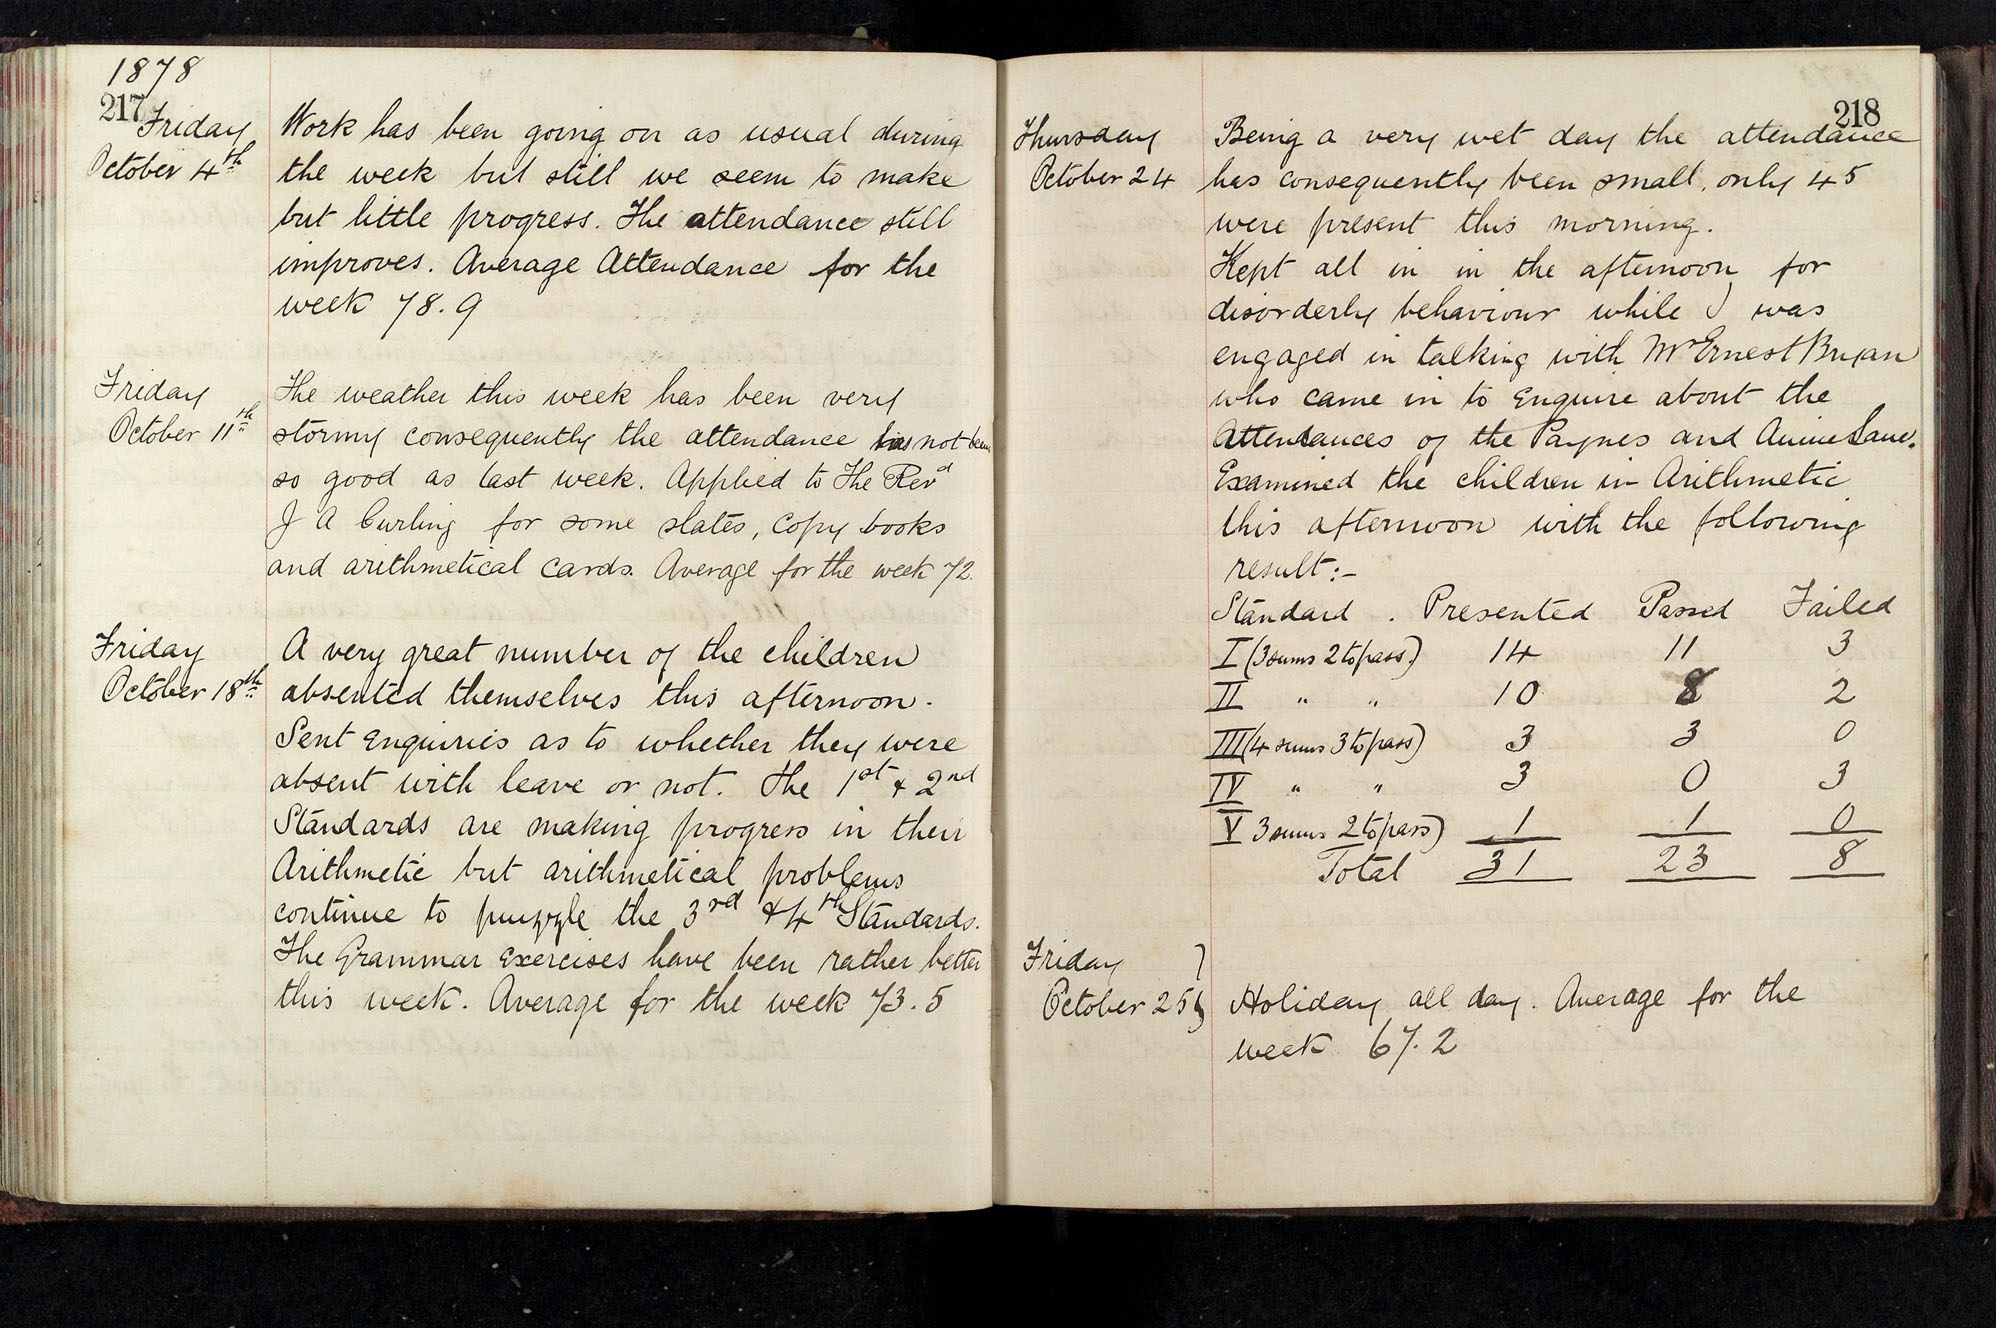 1878
217
Friday
October 4th
Work has been going on as usual during
the week but still we seem to make
but little progress. The attendance still
improves. Average Attendance for the
week 78.9
Friday
October 11th
The weather this week has been very
stormy consequently the attendance has not been
so good as last week. Applied to The Revd
J A Curling for some slates, copy books
and arithmetical cards. Average for the week 72.
Friday
October 18th
A very great number of the children
absented themselves this afternoon.
Sent Enquiries as to whether they were
absent with leave or not. The 1st & 2nd
Standards are making progress in their
Arithmetic but arithmetical problems
continue to puzzle the 3rd & 4th Standards.
The Grammar Exercises have been rather better
this week. Average for the week 73.5
218
Thursday
October 24
Being a very wet day the attendance
has consequently been small, only 45
were present this morning.
Kept all in in the afternoon for
disorderly behaviour while I was
engaged in talking with Mr Ernest Bryan
who came in to Enquire about the
Attendances of the Paynes and Annie Lane.
Examined the children in Arithmetic
this afternoon with the following
result:-
Standard . Presented Passed Failed
I (3 sums 2 to pass.) 14 11 3
II " " 10 8 2
III (4 sums 3 to pass) 3 3 0
IV " " 3 0 3
V 3 sums 2 to pass) 1 1 0
Total 31 23 8
Friday }
October 25 }
Holiday all day. Average for the
week 67.2